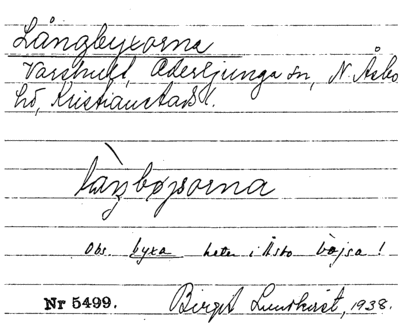 Långbyxorna
Varshult, Oderljunga sn, N Åsbo
hd, Kristianstads l.
làŋbøjsorna
Obs. byxa heter i Åsbo bòjsa!
Nr 5499. Birgit Lundkvist, 1938.